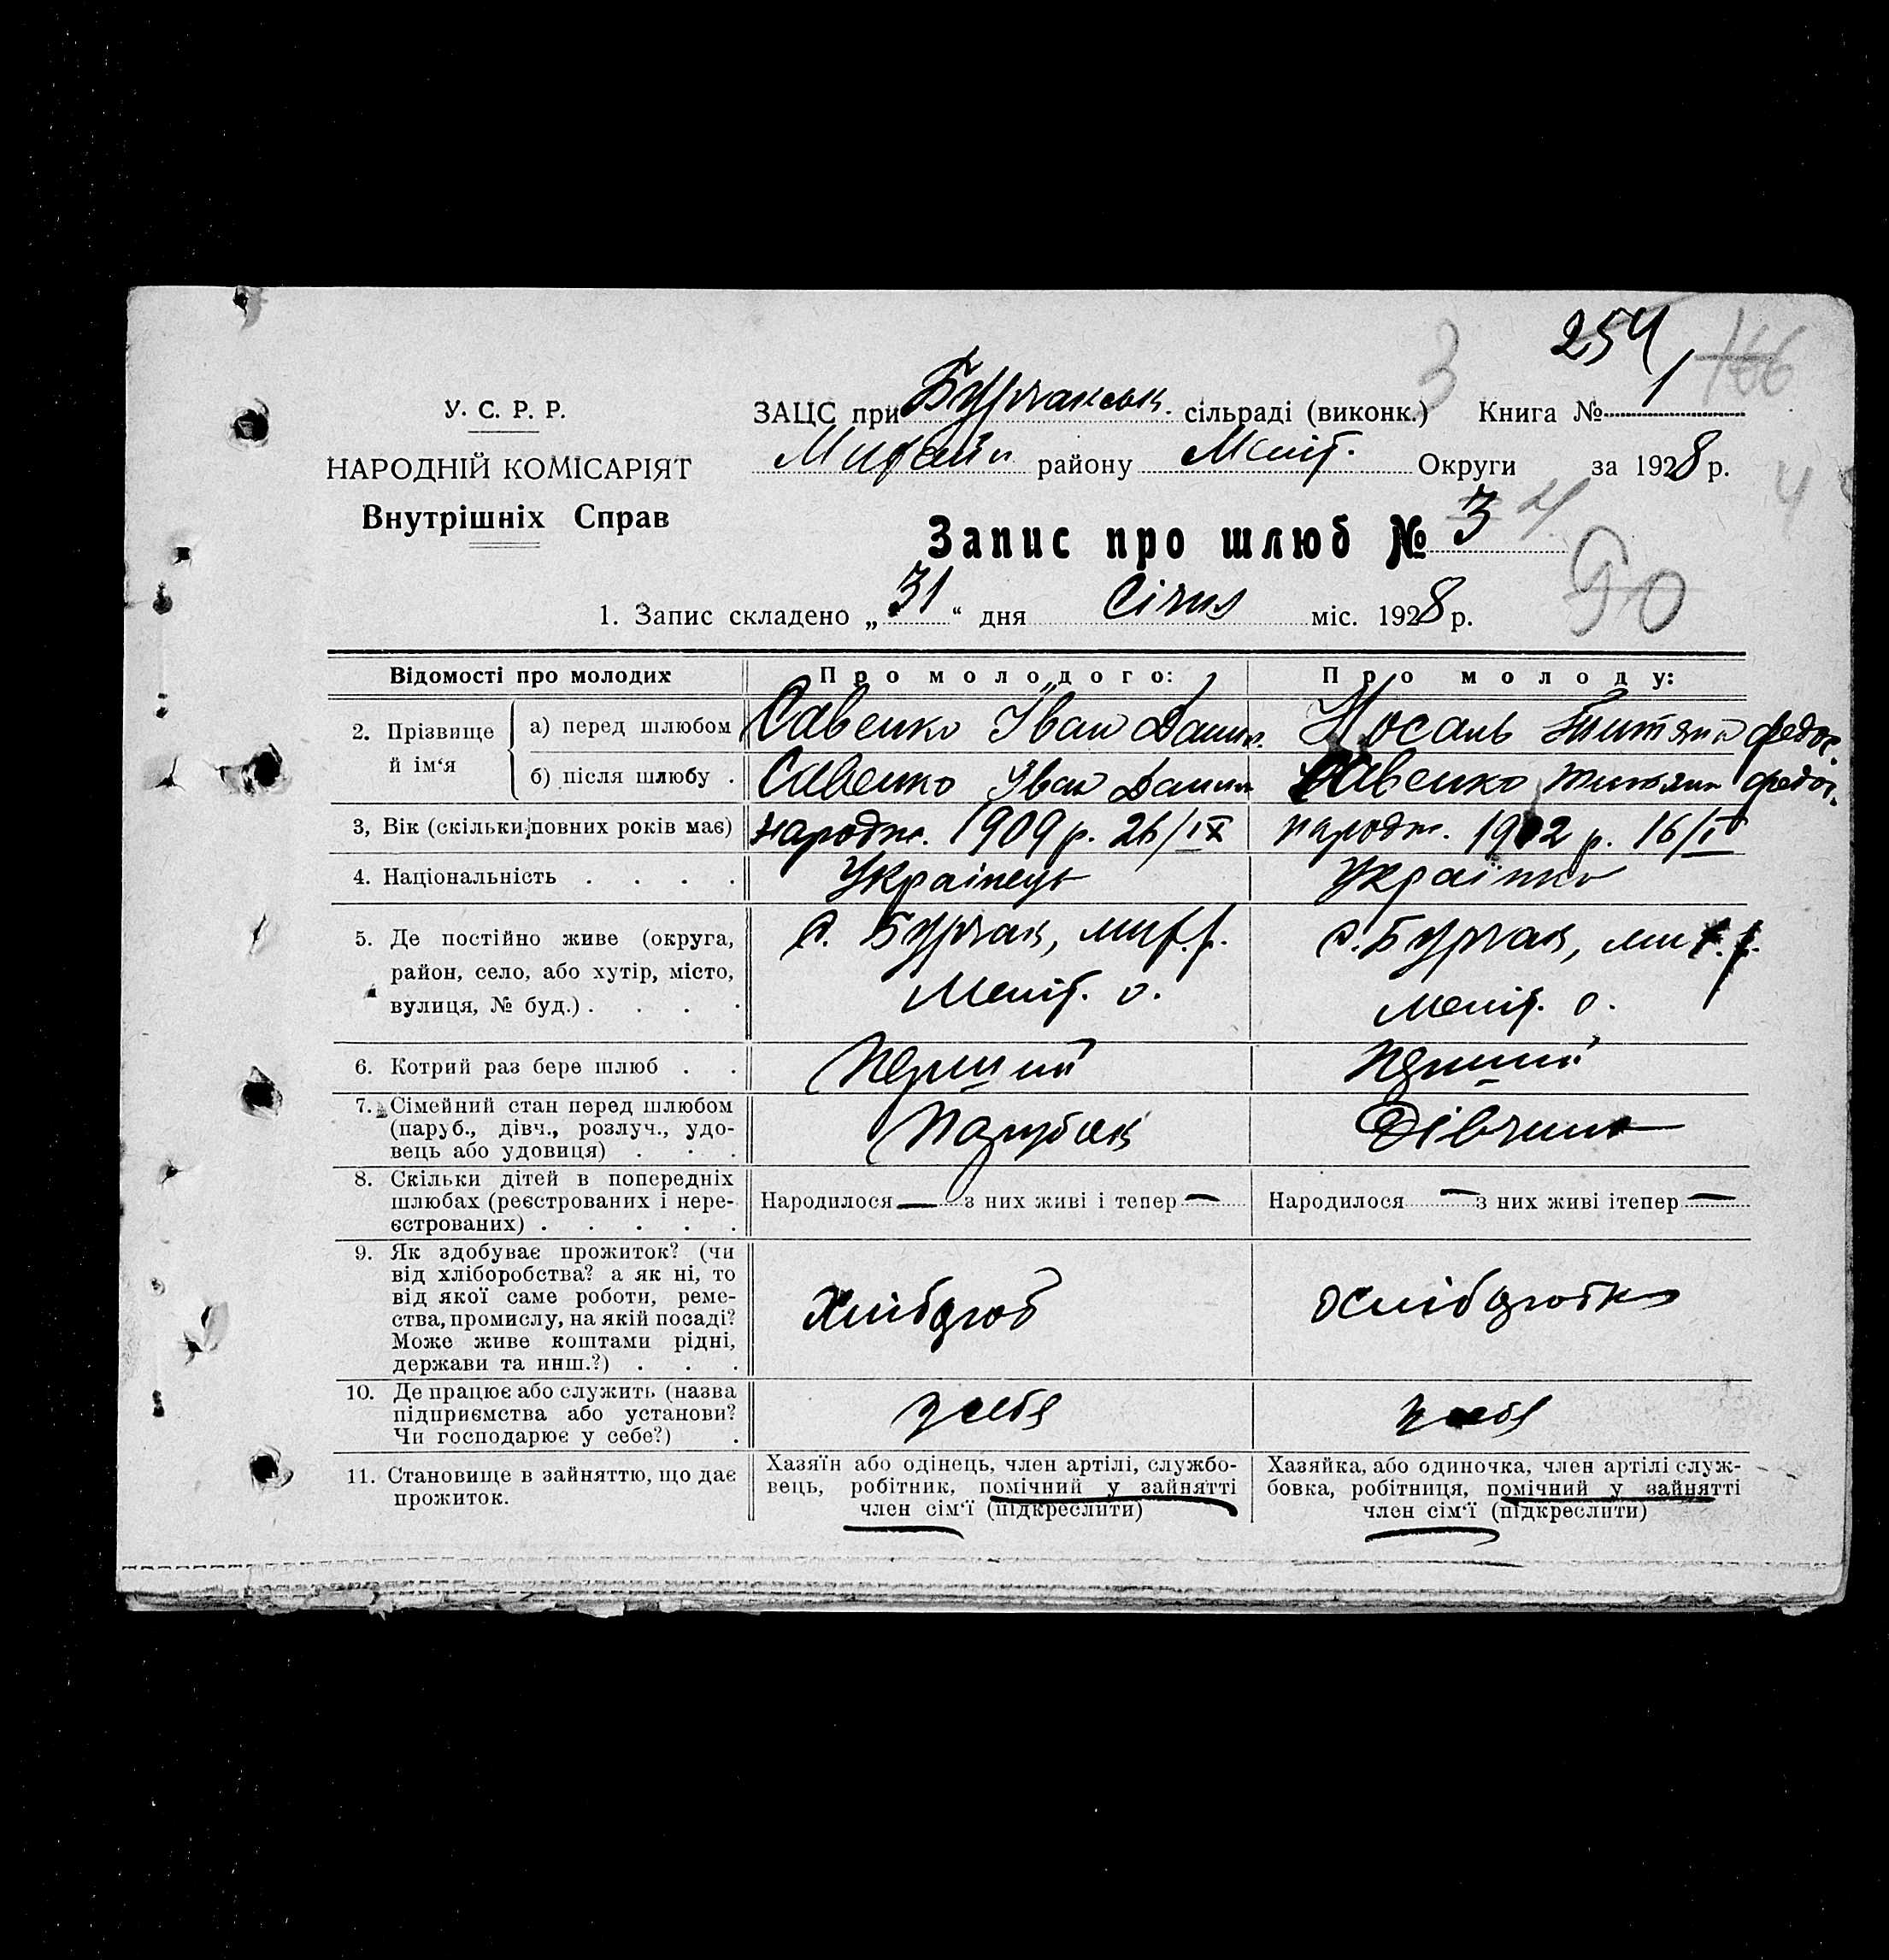 254
166
3
У. С. Р. Р.
НАРОДНІЙ КОМІСАРІЯТ
Внутрішніх Справ
ЗАЦС при Бурчакськ. сільраді (виконк.) Книга № 1
району Меліт. Округи за 1928 р.
4
Запис про шлюб № 3 4
90
1. Запис складено „31“ дня Січня міс. 1928 р.
Відомості про молодих
Про молодого:
Про молоду:
2. Прізвище й ім‘я
а) перед шлюбом
Савенко Іван Данил.
Носаль Титяна Федос.
б) після шлюбу .
Савенко Іван Данил
Савенко Титяна Федос.
3, Вік (скільки повних років має)
народж. 1909 р. 26/IX
народж. 1902 р. 16/I
4. Національність . . . .
Українець
Українка
5. Де постійно живе (округа,
район, село, або хутір, місто,
вулиця, № буд.) . . . .
с. Бурчак, мих. р.
Меліт. о.
с. Бурчак, мих. р.
Меліт. о.
6. Котрий раз бере шлюб . .
Перший
Перший
7. Сімейний стан перед шлюбом
(паруб., дівч., розлуч., удо-
вець або удовиця) . . .
Парубок
Дівчина
8. Скільки дітей в попередніх
шлюбах (реєстрованих і нере-
єстрованих) . . . . .
Народилося — з них живі і тепер —
Народилося — з них живі ітепер —
9. Як здобуває прожиток? (чи
від хліборобства? а як ні, то
від якої саме роботи, реме-
ства, промислу, на якій посаді?
Може живе коштами рідні,
держави та инш.?) . . .
Хлібороб
Хліборобка
10. Де працює або служить (назва
підприємства або установи?
Чи господарює у себе?) .
у себе
у себе
11. Становище в зайняттю, що дає
прожиток.
Хазяїн або одінець, член артілі, службо-
вець, робітник, помічний у зайнятті
член сім‘ї (підкреслити)
Хазяйка, або одиночка, член артілі служ-
бовка, робітниця, помічний у зайнятті
член сім‘ї (підкреслити)